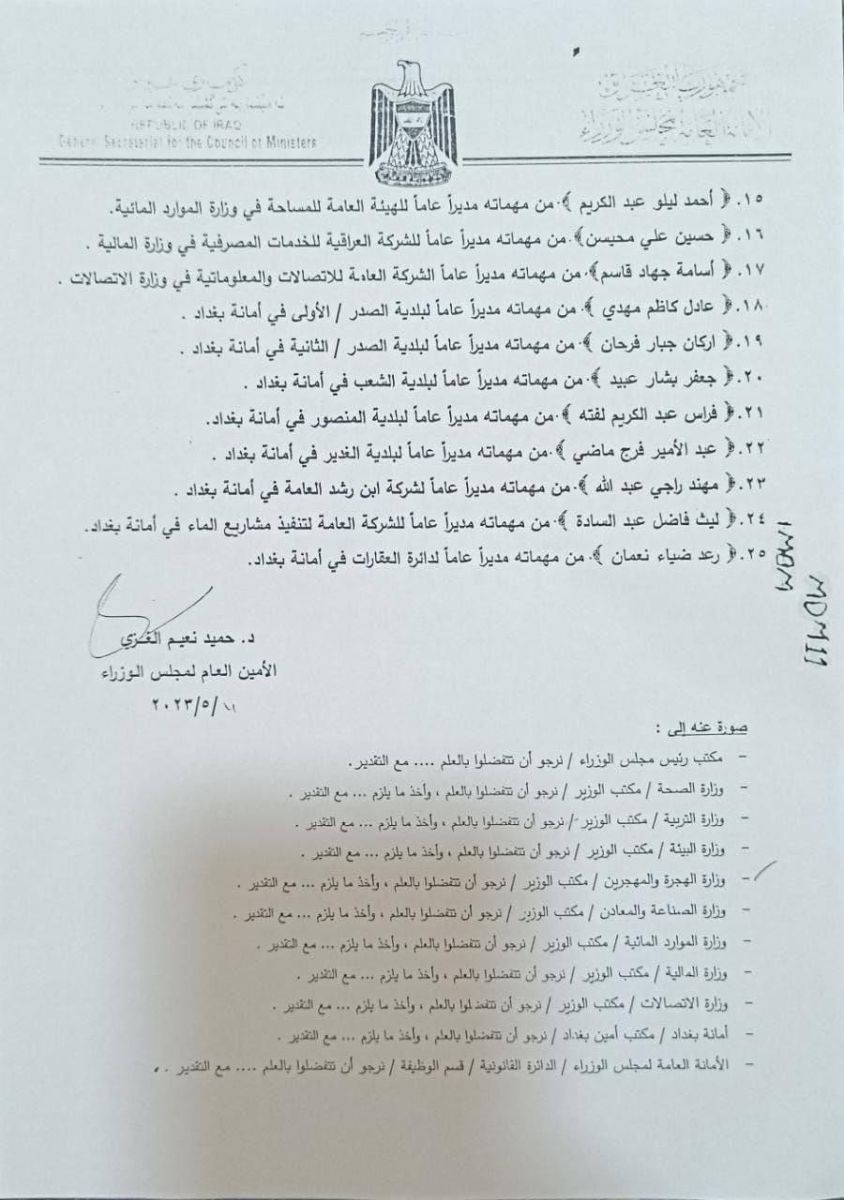 جمهورية العراق
الأمانة العامة لمجلس الوزراء
REPUBLIC OF IRAQ
General Secretariat for the Council of Ministers
١٥. ﴿ أحمد ليلو عبد الكريم ﴾ من مهماته مديراً عاماً للهيئة العامة للمساحة في وزارة الموارد المائية.
١٦. ﴿ حسين علي محيسن﴾ من مهماته مديراً عاماً للشركة العراقية للخدمات المصرفية في وزارة المالية .
١٧. ﴿ أسامة جهاد قاسم﴾ من مهماته مديراً عاماً الشركة العامة للاتصالات والمعلوماتية في وزارة الاتصالات .
١٨. ﴿ عادل كاظم مهدي ﴾ من مهماته مديراً عاماً لبلدية الصدر / الأولى في أمانة بغداد .
١٩. ﴿ اركان جبار فرحان ﴾ من مهماته مديراً عاماً لبلدية الصدر / الثانية في أمانة بغداد .
٢٠. ﴿ جعفر بشار عبيد ﴾ من مهماته مديراً عاماً لبلدية الشعب في أمانة بغداد .
٢١. ﴿ فراس عبد الكريم لفته ﴾ من مهماته مديراً عاماً لبلدية المنصور في أمانة بغداد.
٢٢. ﴿ عبد الأمير فرج ماضي ﴾ من مهماته مديراً عاماً لبلدية الغدير في أمانة بغداد .
٢٣. ﴿ مهند راجي عبد الله ﴾ من مهماته مديراً عاماً لشركة ابن رشد العامة في أمانة بغداد .
٢٤. ﴿ ليث فاضل عبد السادة ﴾ من مهماته مديراً عاماً للشركة العامة لتنفيذ مشاريع الماء في أمانة بغداد.
٢٥. ﴿ رعد ضياء نعمان ﴾ من مهماته مديراً عاماً لدائرة العقارات في أمانة بغداد.
MDM11
د. حميد نعيم الغزي
الأمين العام لمجلس الوزراء
١١/ ٢٠٢٣/٥
صورة عنه إلى :
- مكتب رئيس مجلس الوزراء / نرجو أن تتفضلوا بالعلم .... مع التقدير.
- وزارة الصحة / مكتب الوزير / نرجو أن تتفضلوا بالعلم ، وأخذ ما يلزم ... مع التقدير .
- وزارة التربية / مكتب الوزير / نرجو أن تتفضلوا بالعلم ، وأخذ ما يلزم ... مع التقدير .
- وزارة البيئة / مكتب الوزير / نرجو أن تتفضلوا بالعلم ، وأخذ ما يلزم ... مع التقدير .
- وزارة الهجرة والمهجرين / مكتب الوزير / نرجو أن تتفضلوا بالعلم ، وأخذ ما يلزم ... مع التقدير .
- وزارة الصناعة والمعادن / مكتب الوزير / نرجو أن تتفضلوا بالعلم ، وأخذ ما يلزم ... مع التقدير .
- وزارة الموارد المائية / مكتب الوزير / نرجو أن تتفضلوا بالعلم ، وأخذ ما يلزم ... مع التقدير .
- وزارة المالية / مكتب الوزير / نرجو أن تتفضلوا بالعلم ، وأخذ ما يلزم ... مع التقدير .
- وزارة الاتصالات / مكتب الوزير / نرجو أن تتفضلوا بالعلم ، وأخذ ما يلزم ... مع التقدير .
- أمانة بغداد / مكتب أمين بغداد / نرجو أن تتفضلوا بالعلم ، وأخذ ما يلزم ... مع التقدير .
- الأمانة العامة لمجلس الوزراء / الدائرة القانونية / قسم الوظيفة / نرجو أن تتفضلوا بالعلم .... مع التقدير .